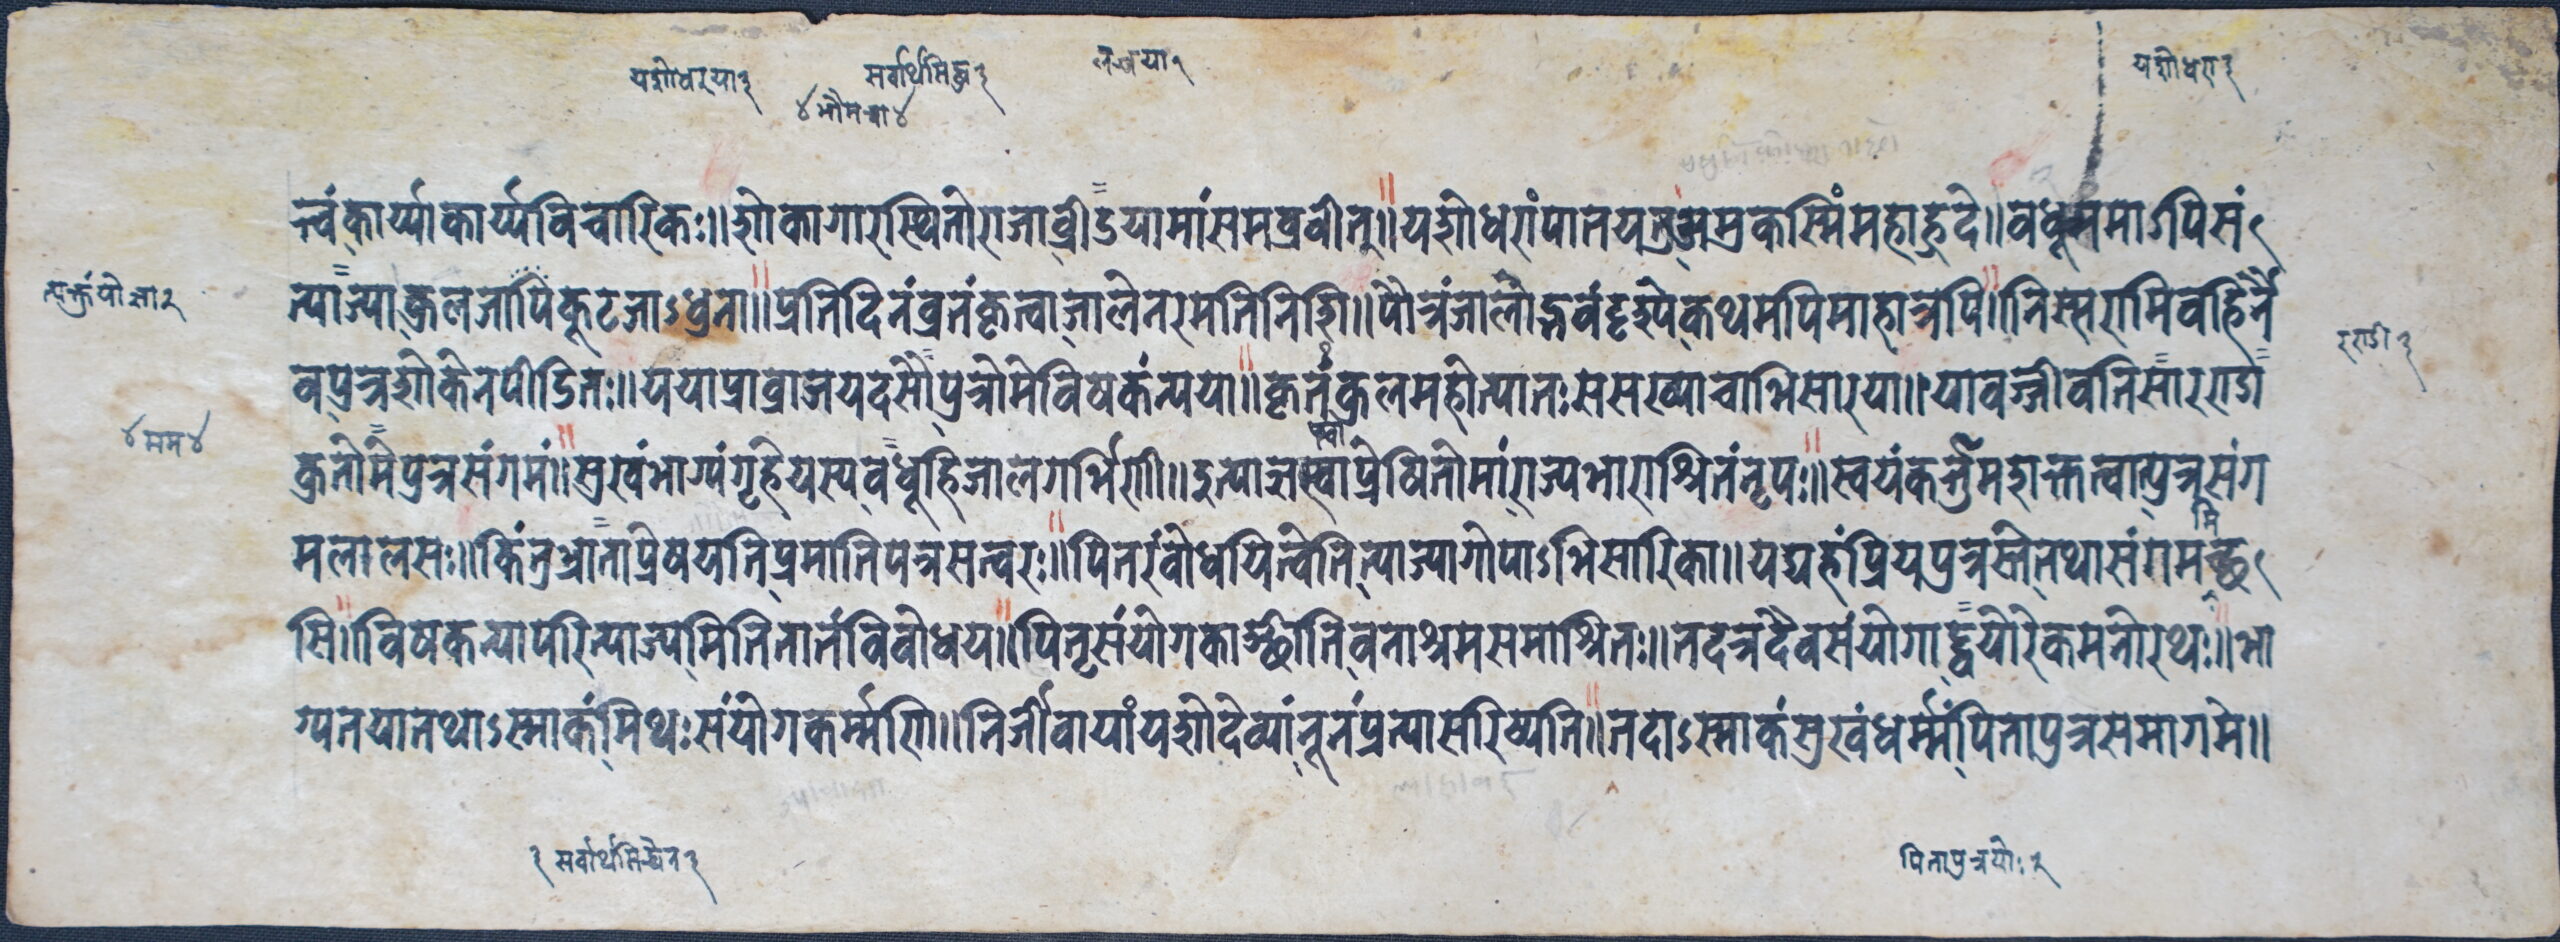 यशोधरया २
सर्वार्थसिद्ध २
लज्जया २
यशोधरा २
४ भौमवा ४
त्त्वं कार्य्याकार्य्यविचारिकः॥ शोकागारस्थितो राजा व्रीडयामांसमब्रवीत्॥ यशोधरां पातयतुमम्रकस्मिं महाह्रुदे॥ वधूसमाऽपि सं
त्याज्या कुलजापि कूटजाऽधुना॥ प्रतिदिनं व्रतं कृत्वा जालेन रमति निशि॥ पौत्रं जालोद्भवं दृश्ये कथमपि माहात्रपि॥ निस्सरामि वहिर्नै
व पुत्रशोकेन पीडितः॥ यया प्राव्राजयदसौ पुत्रो मे विषकंन्यया॥ कृतं कुलमहोत्पातः ससख्या चाभिसारया॥ यावज्जीवति सा रराडा
कुतो मे पुत्रसंगमां॥ सुखं भाग्यं गृहे यस्य वधूर्हि जालगर्भिणी॥ इत्याज्ञप्त्वा प्रेषितो मां राज्यभाराश्रितं नृपः॥ स्वयं कर्त्तुमशक्तत्वात्पुत्रसंग
मलालसः॥ किं नु भ्राता प्रेषयति प्रमातिपत्रसत्वरः॥ पितरं वोधयित्वेति त्याज्या गोपाऽभिसारिका॥ यद्यहं प्रियपुत्रस्तो तथा संगमिच्छ
सि॥ विषकन्या परित्याज्यमिति तातं विवोधय॥ पितृसंयोगकाङ्क्षोति वनाश्रमसमाश्रितः॥ तदत्र दैवसंयोगाद्द्वयोरेकमनोरथः॥ भा
ग्यतया तथाऽस्माकं मिथः संयोगकर्म्मणि॥ निर्जीवायां यशोदेव्यां नूनं प्रत्यासरिष्यति॥ तदाऽस्माकं सुखं धर्म्मं पितापुत्रसमागमे॥
४ मम ४
२ सर्वार्थसिद्धेन २
पितापुत्रयोः २